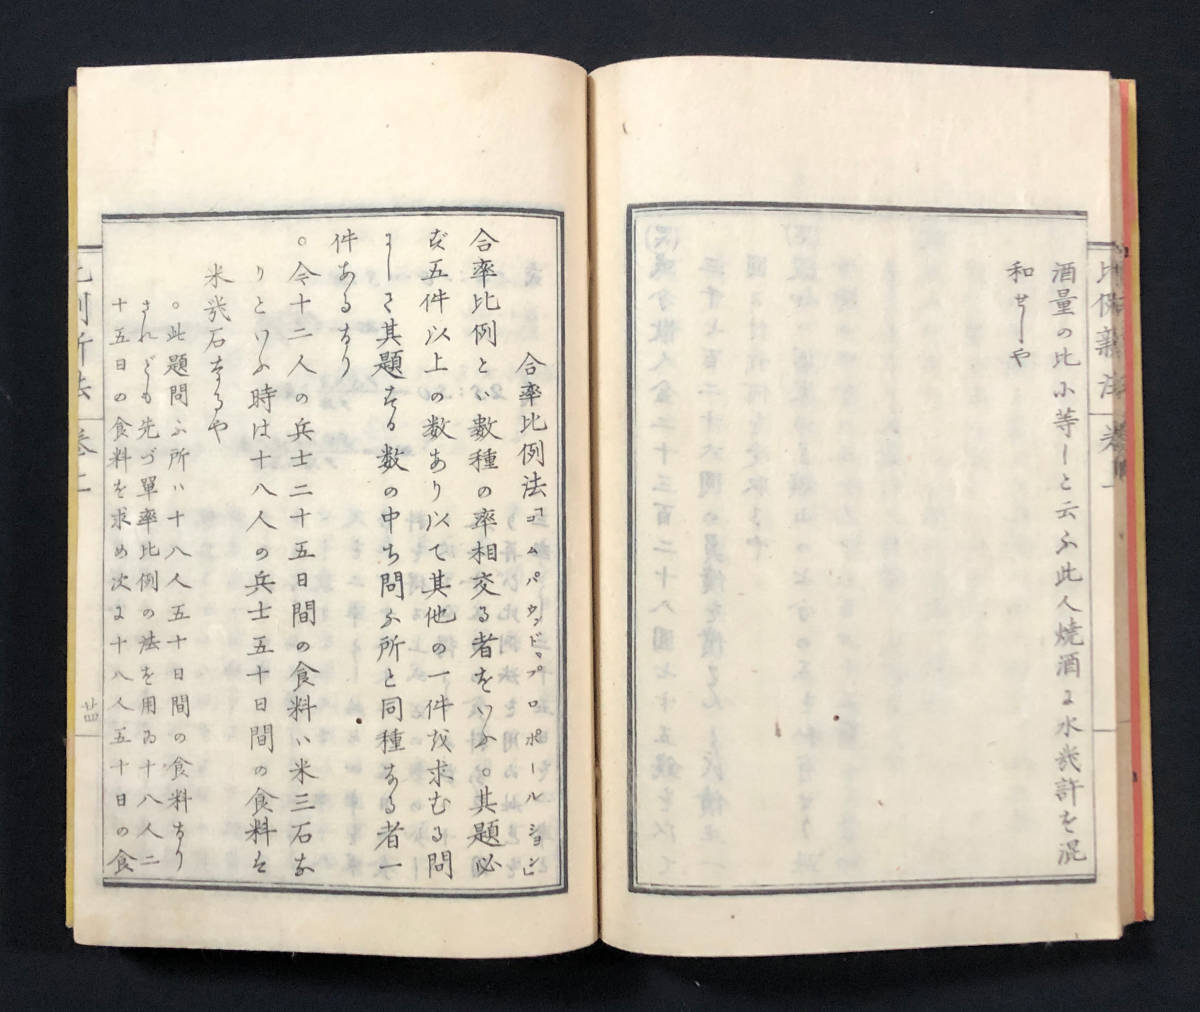 酒量の比小等しと云ふ此人焼酒に水幾許を混
和せしや
合率比例法「コムパウンド、プロポールション」
合率比例とハ数種の率相交る者をいふ。其題必
ず五件以上の数あり以て其他の一件を求むる問
にして其題なる数の中ち問ふ所と同種なる者一
件あるなり
。今十二人の兵士二十五日間の食料ハ米三石な
りといふ時は十八人の兵士五十日間の食料は
米幾石なるや
。此題問ふ所ハ十八人五十日間の食料なり
されども先づ單率比例の法を用ゐ十八人二
十五日の食料を求め次に十八人五十日の食
比例新法
卷二
廿四